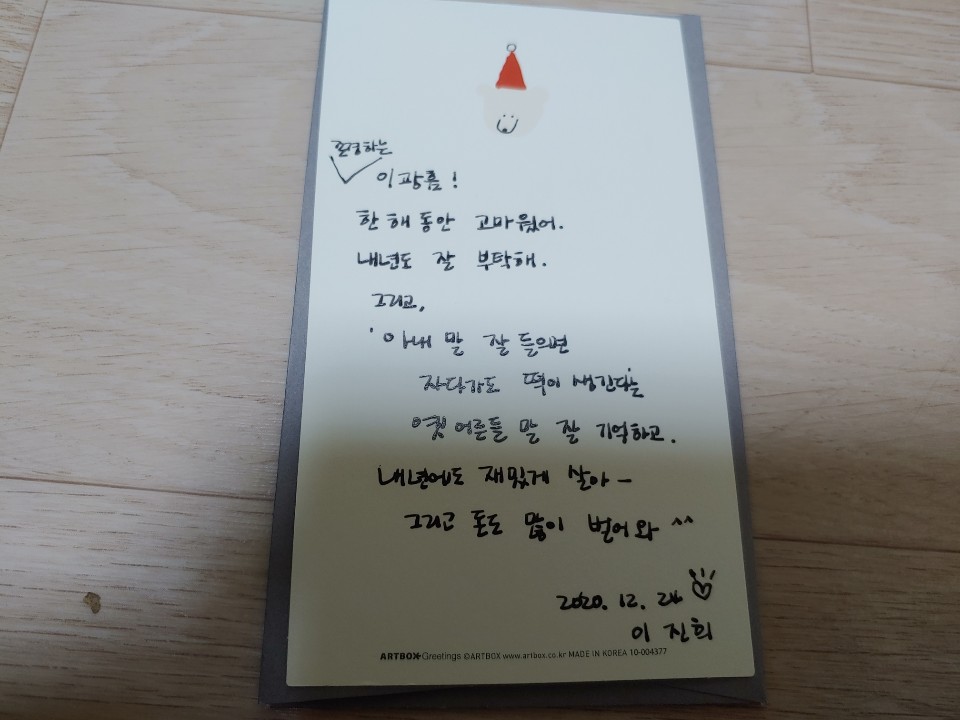 존경하는
이광름!
한 해 동안 고마웠어.
내년도 잘 부탁해.
그리고,
'아내 말 잘 들으면
자다가도 떡이 생긴다'는
옛 어른들 말 잘 기억하고.
내년에도 재밌게 살아-
그리고 돈도 많이 벌어와 ^^
2020. 12. 24
이진희
ARTBOX Greetings ©ARTBOX www.artbox.co.kr MADE IN KOREA 10-004377